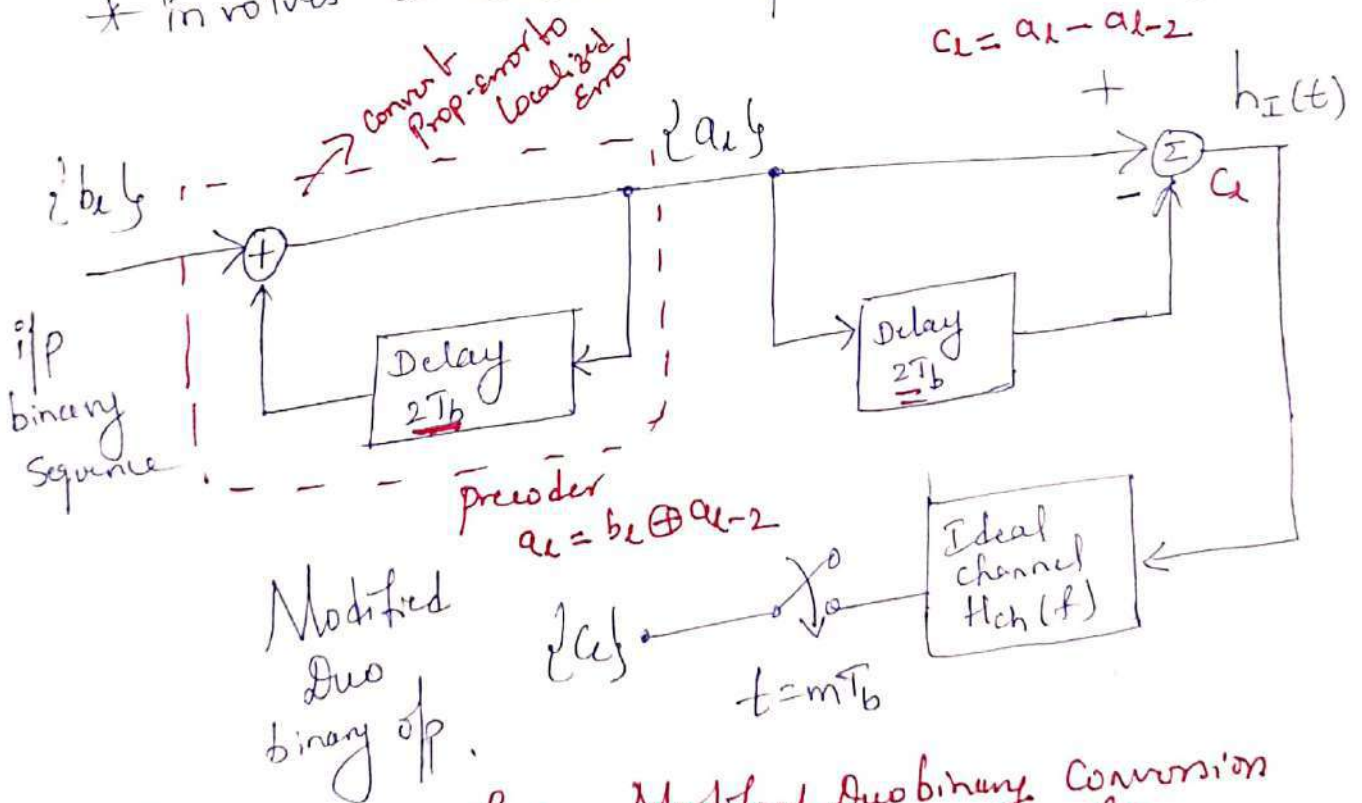 * involves
convert
Prop-error to
Localized
Error
C_k = a_k - a_{k-2}
{b_k}
{a_k}
+
h_I(t)
+
Σ
-
C_k
i/p
binary
Sequence
Delay
2T_b
Delay
2T_b
precoder
a_k = b_k ⊕ a_{k-2}
Ideal
channel
H_ch(f)
Modified
Duo
binary o/p.
{C_k}
t=mT_b
Modified Duobinary Conversion